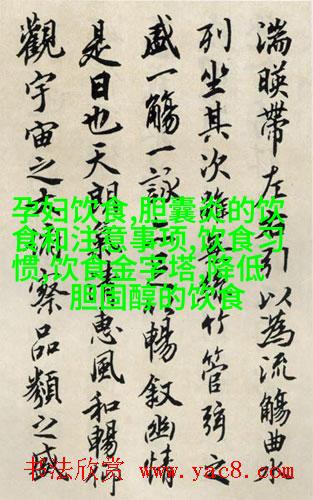 湍暎帶左右引以為流觴曲水
列坐其次雖無絲竹管弦之
盛一觴一詠亦足以暢叙幽情
是日也天朗氣清惠風和暢仰
觀宇宙之大俯察品類之盛
孕妇饮食,胆囊炎的饮
食和注意事项,饮食习
惯,饮食金字塔,降低
胆固醇的饮食
书法欣赏 www.yac8.com